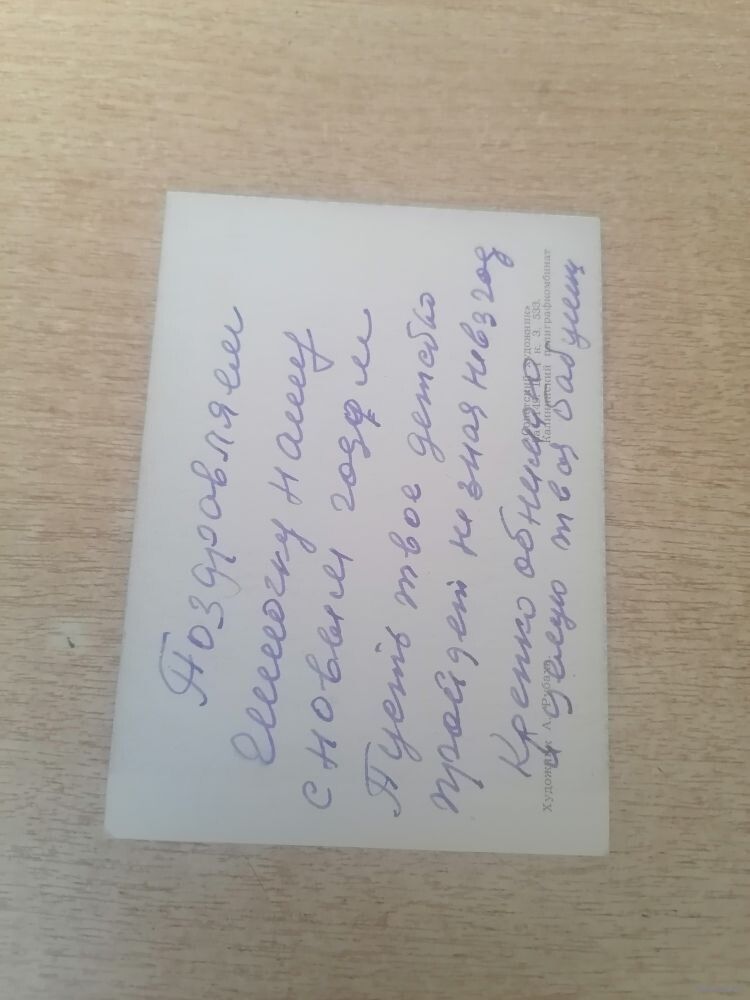 Поздравляем
нашу
с новым годом
Пусть твое детство
пройдет не зная невзгод
Крепко обнимаю
и целую твоя бабушка
Художник А. Рыбаков
«Советский художник»
З. 533.
Калининский полиграфкомбинат